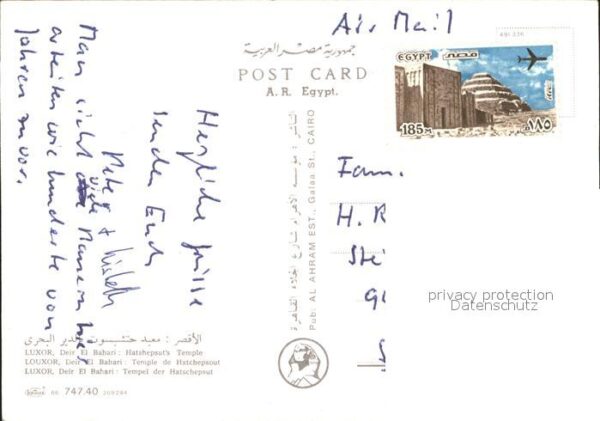 Air Mail
491 336
جمهورية مصر العربية
POST CARD
A. R. Egypt.
EGYPT مصر
185M ٨٨٥
Man sieht viele Männer hier
arbeiten wie hunderte von
Jahren zuvor.
Herzliche Grüsse
senden Euch
Peter +
Fam.
H. R
Ste
privacy protection
Datenschutz
الناشر : مؤسسة الأهرام شارع الجلاء القاهرة
Pub: AL AHRAM EST., Galaa St., CAIRO
الأقصر : معبد حتشبسوت بالدير البحرى
LUXOR, Deir El Bahari : Hatshepsut's Temple
LOUXOR, Deir El Bahari : Temple de Hatchepsout
LUXOR, Deir El Bahari : Tempel der Hatschepsut
86 747.40 209294